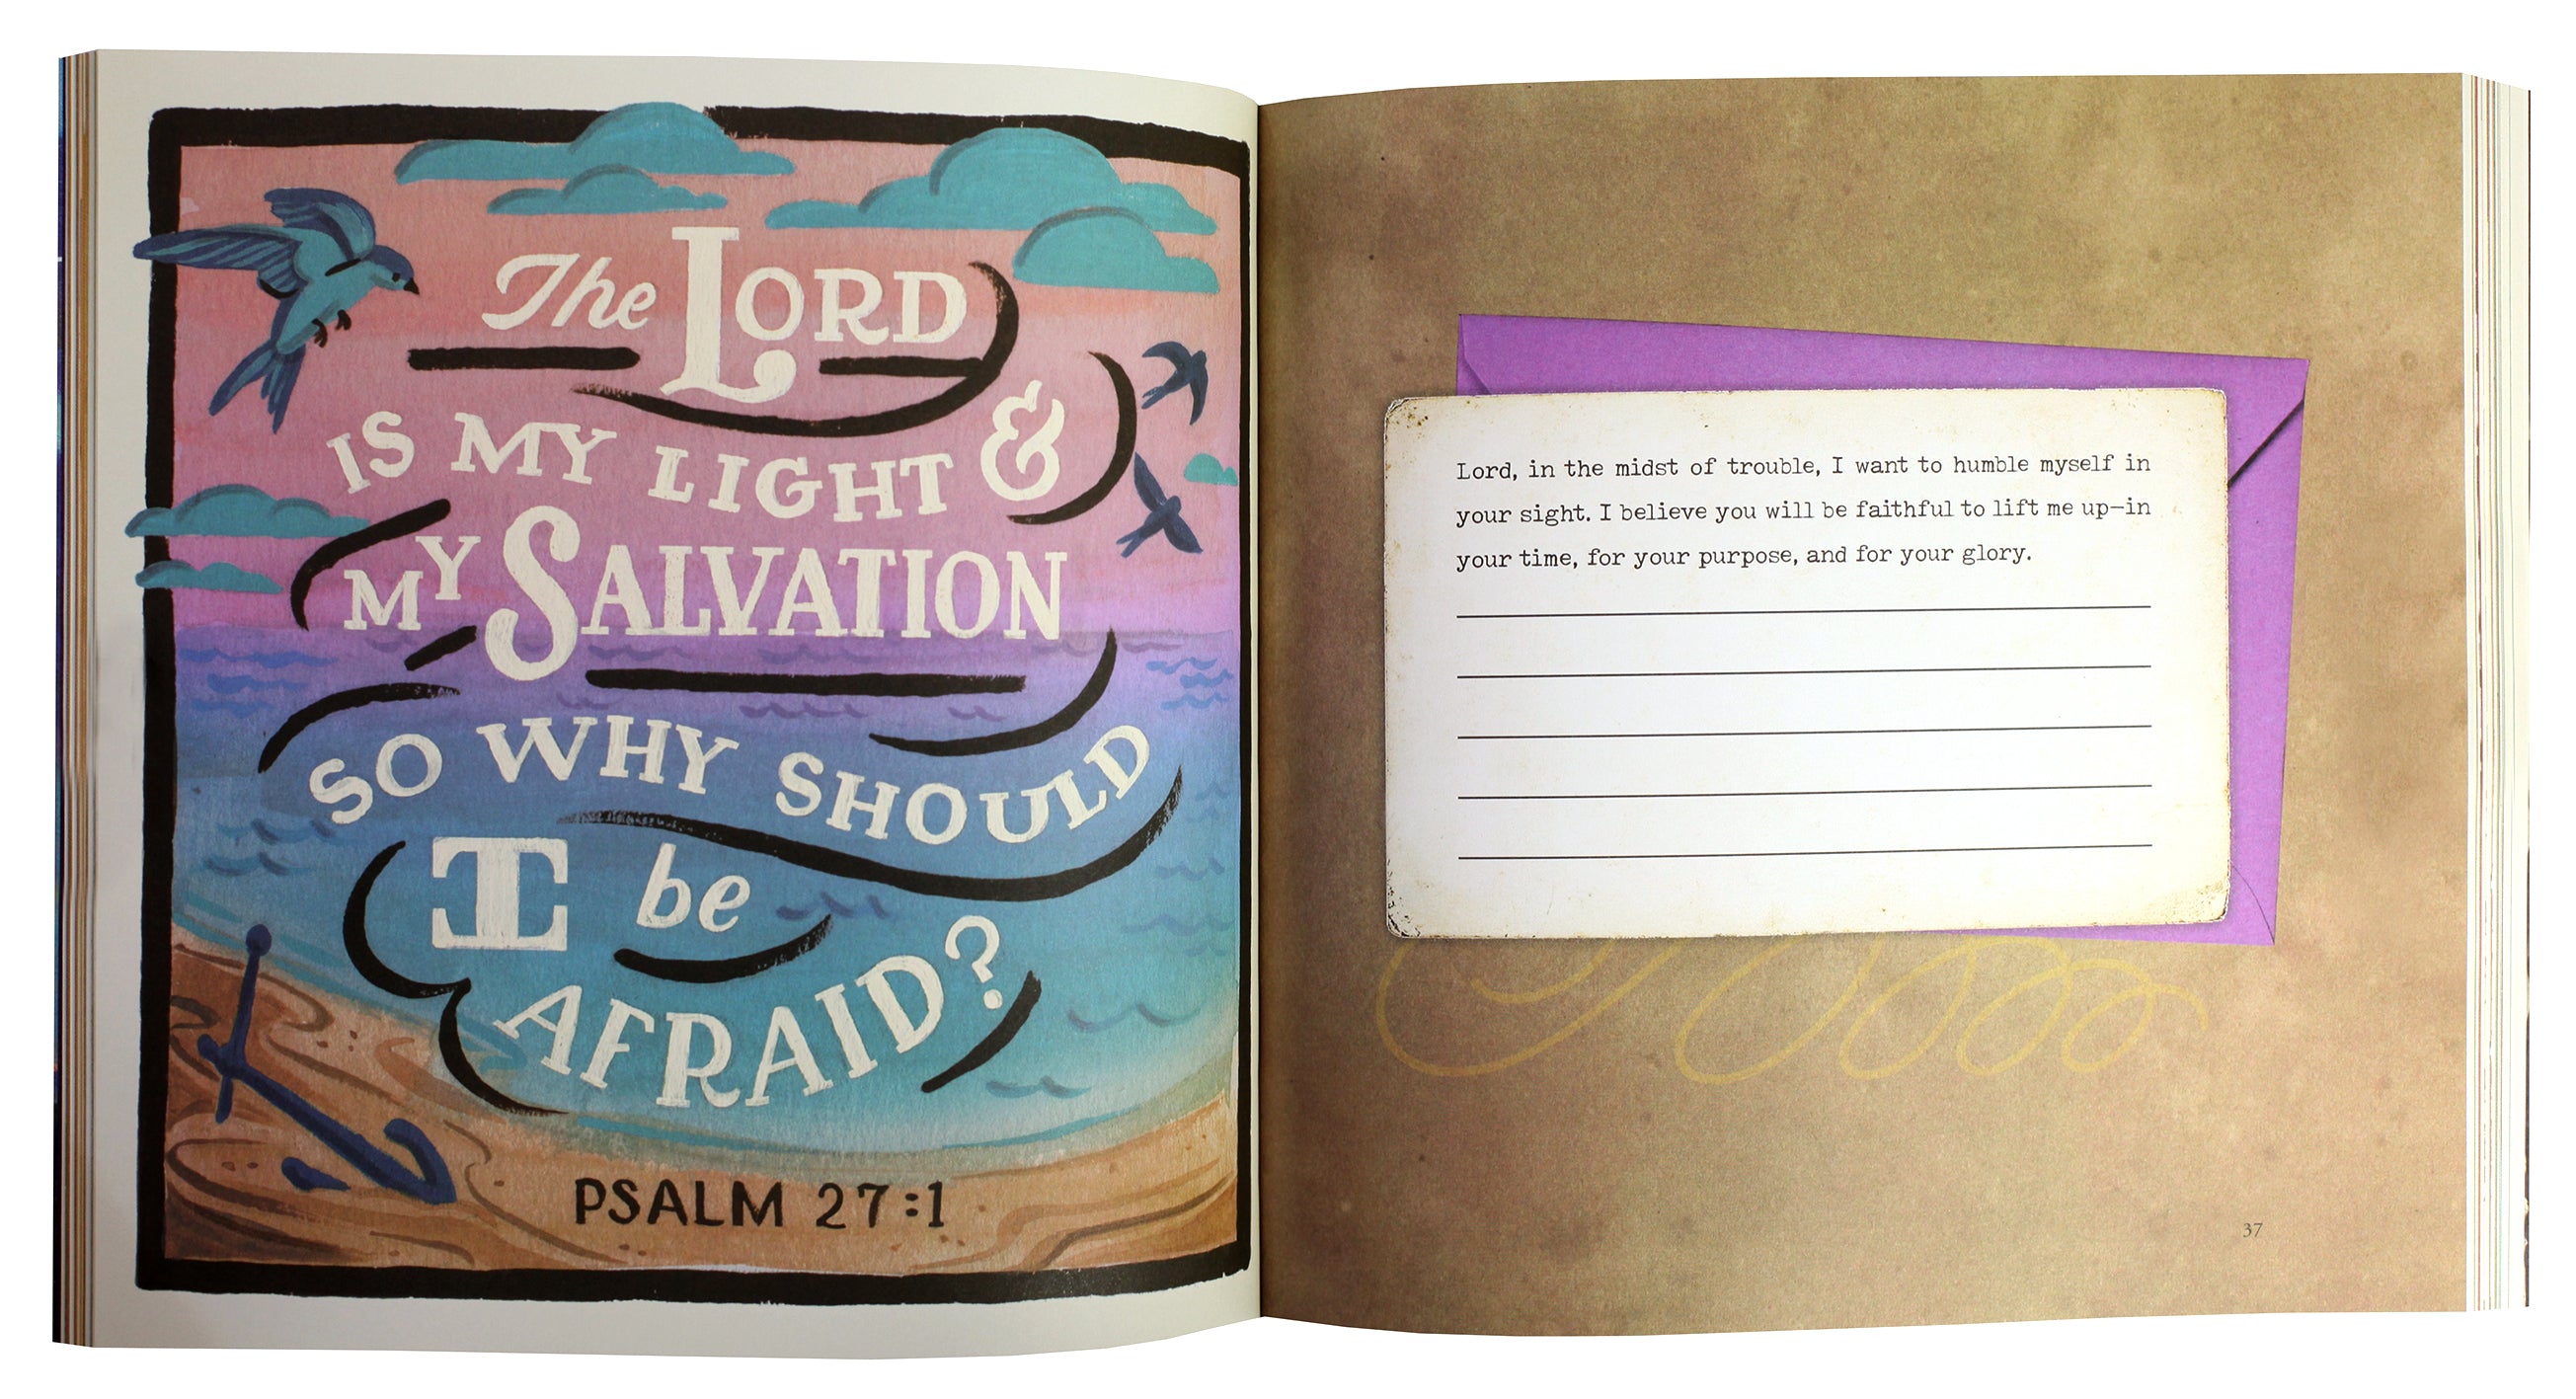 The LORD
IS MY LIGHT &
MY SALVATION
SO WHY SHOULD
I be
AFRAID?
PSALM 27:1
Lord, in the midst of trouble, I want to humble myself in
your sight. I believe you will be faithful to lift me up—in
your time, for your purpose, and for your glory.
37